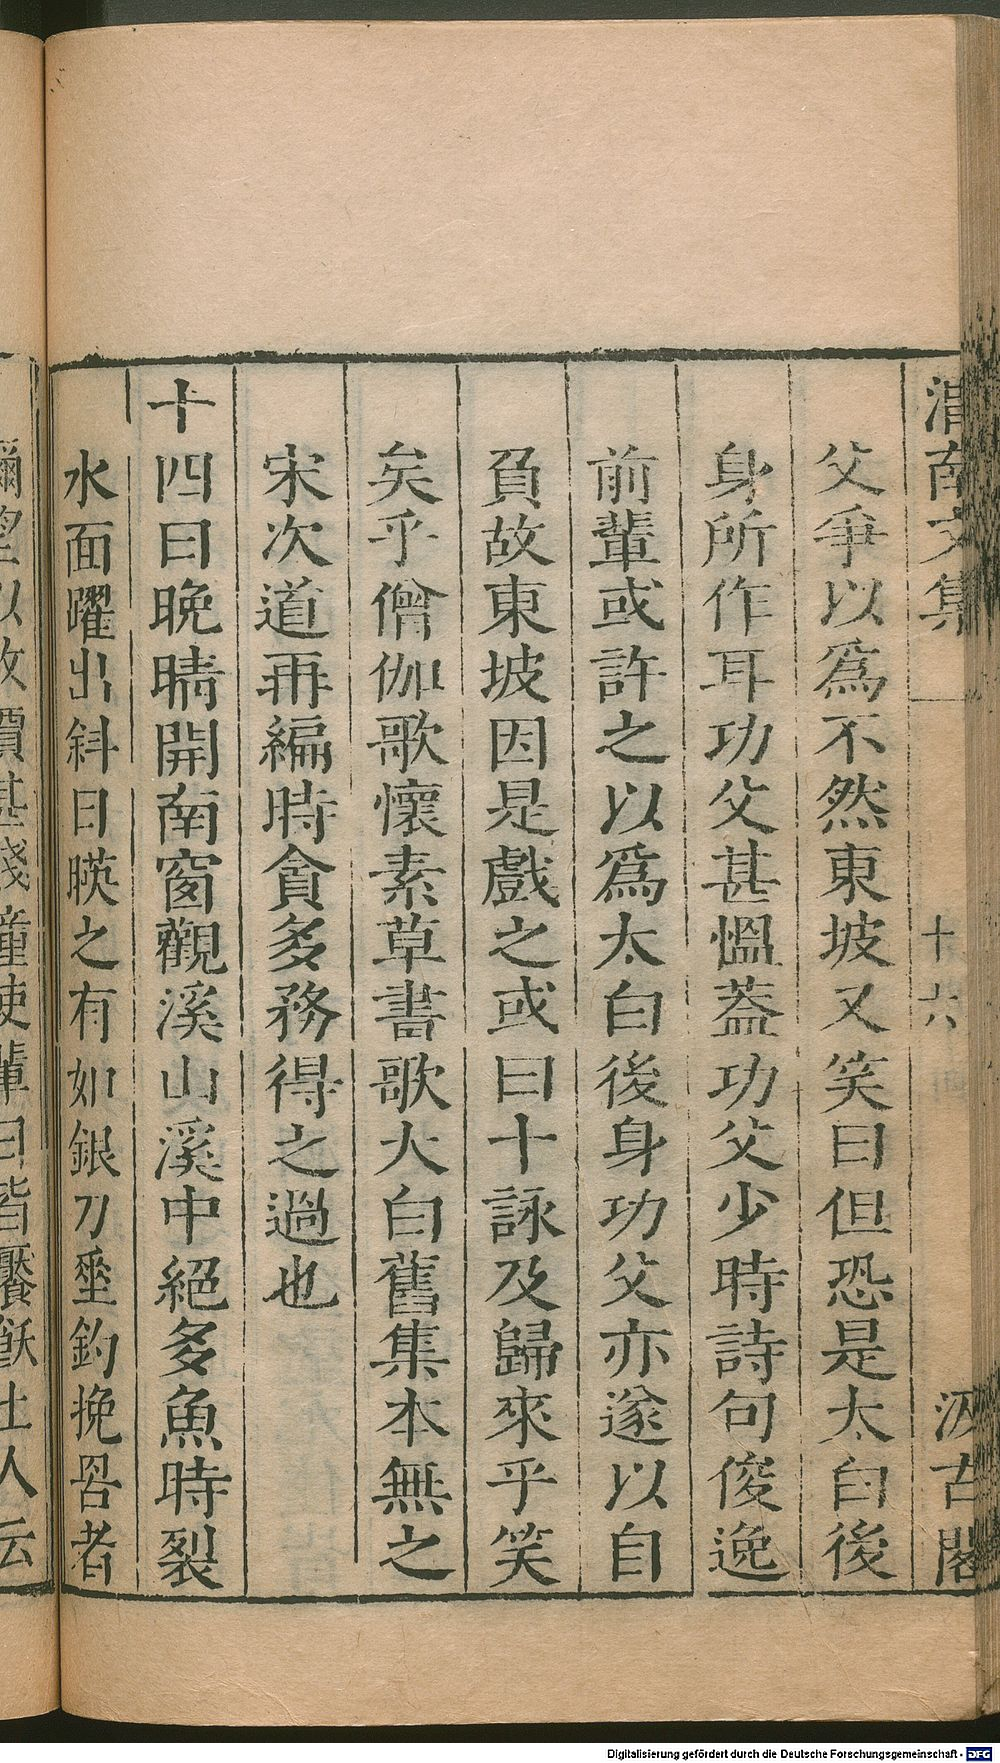 渭南文集
十六
汲古閣
父爭以爲不然東坡又笑曰但恐是太白後
身所作耳功父甚愠葢功父少時詩句俊逸
前輩或許之以爲太白後身功父亦遂以自
負故東坡因是戲之或曰十詠及歸來乎笑
矣乎僧伽歌懷素草書歌太白舊集本無之
宋次道再編時貪多務得之過也
十四日晚晴開南窗觀溪山溪中絕多魚時裂
水面躍出斜日暎之有如銀刀垂釣挽罟者
彌望以故價甚賤僮使輩日皆饜飫土人云
Digitalisierung gefördert durch die Deutsche Forschungsgemeinschaft - DFG